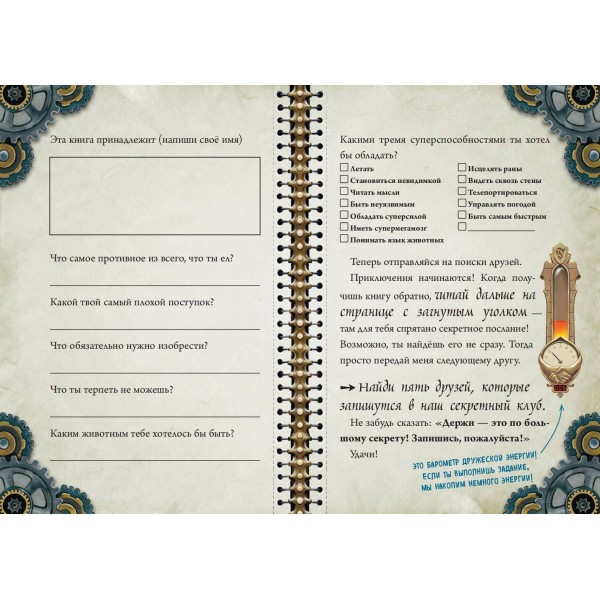 Эта книга принадлежит (напиши своё имя)
Что самое противное из всего, что ты ел?
Какой твой самый плохой поступок?
Что обязательно нужно изобрести?
Что ты терпеть не можешь?
Каким животным тебе хотелось бы быть?
Какими тремя суперспособностями ты хотел
бы обладать?
Летать
Становиться невидимкой
Читать мысли
Быть неуязвимым
Обладать суперсилой
Иметь супермегамозг
Понимать язык животных
Исцелять раны
Видеть сквозь стены
Телепортироваться
Управлять погодой
Быть самым быстрым
Теперь отправляйся на поиски друзей.
Приключения начинаются! Когда полу-
чишь книгу обратно, читай дальше на
странице с загнутым уголком —
там для тебя спрятано секретное послание!
Возможно, ты найдёшь его не сразу. Тогда
просто передай меня следующему другу.
Найди пять друзей, которые
запишутся в наш секретный клуб.
Не забудь сказать: «Держи — это по боль-
шому секрету! Запишись, пожалуйста!»
Удачи!
ЭТО БАРОМЕТР ДРУЖЕСКОЙ ЭНЕРГИИ!
ЕСЛИ ТЫ ВЫПОЛНИШЬ ЗАДАНИЕ,
МЫ НАКОПИМ НЕМНОГО ЭНЕРГИИ!